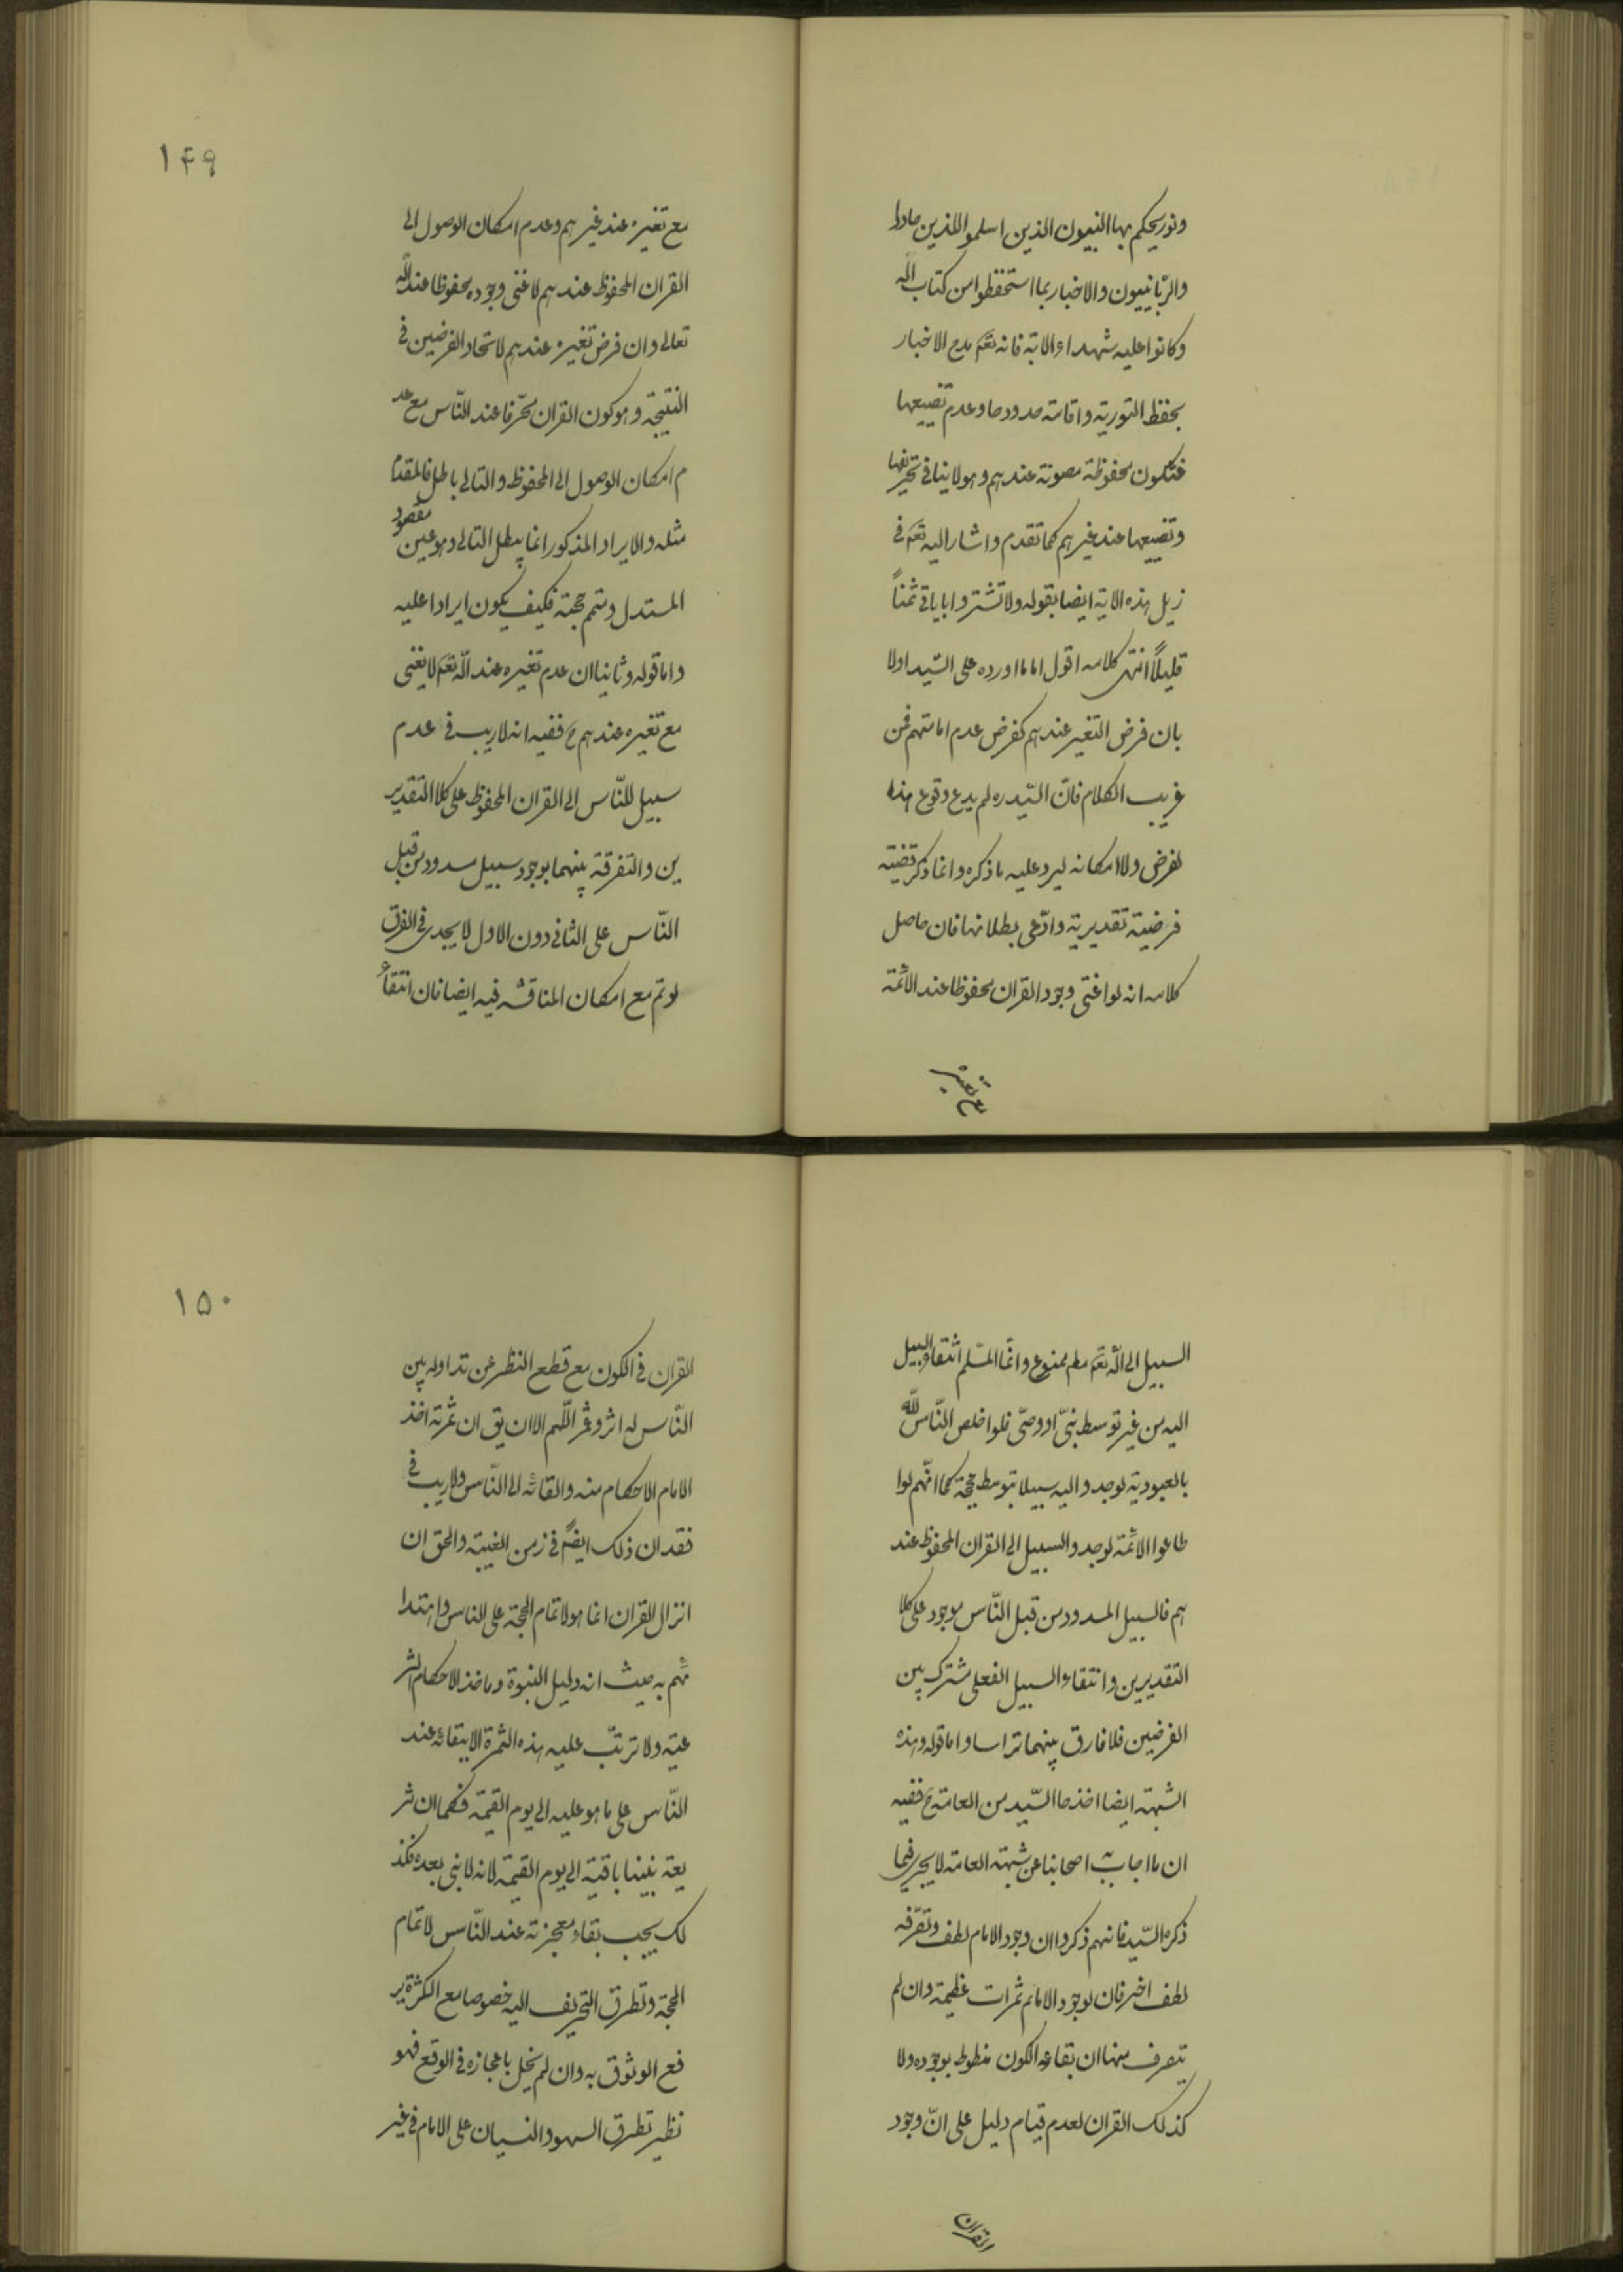 ونور يحكم بها النبيون الذين اسلموا للذين هادوا
والربانييون والاخبار بما استحفظوا من كتاب الله
وكانوا عليه شهداء الاية فانه تعم مدح الاخبار
بحفظ التورية واقامة حدودها وعدم تضييعها
فتكون محفوظة مصونة عندهم وهو لا ينافي تحريفها
وتضييعها عند غيرهم كما تقدم واشار اليه تعم في
زيل هذه الاية ايضا بقوله ولا تشتروا باياتي ثمناً
قليلاً انتهى كلامه اقول اما ما اورده على السّيد اولا
بان فرض التغير عندهم كفرض عدم امامتهم فمن
غريب الكلام فانّ السّيد ره لم يدع وقوع هذه
لفرض ولا امكانه ليرد عليه ما ذكره وانما ذكر قضيته
فرضية تقديرية وادّعى بطلانها فان حاصل
كلامه انه لو اغنى وجود القران محفوظا عند الائمّة
مع تغيره
١۴٩
مع تغيره عند غيرهم وعدم امكان الوصول الى
القران المحفوظ عندهم لاغنى وجوده محفوظا عند الله
تعالى وان فرض تغيره عندهم لاتحاد الفرضين في
النتيجة وهو كون القران محرّفا عند النّاس مع عد
م امكان الوصول الى المحفوظ والتالي باطل فالمقدم
مثله والايراد المذكور انما يبطل التالي وهو عين مقصود
المستدل ومتمم حجته فكيف يكون ايرادا عليه
واما قوله وثانيا ان عدم تغيره عند الله تعم لا يغنى
مع تغيره عندهم ع ففيه انه لا ريب في عدم
سبيل للنّاس الى القران المحفوظ على كلا التقدير
ين والتفرقة بينهما بوجود سبيل مسدود من قبل
النّاس على الثاني دون الاول لا يجدى في الفرق
لو تم مع امكان المناقشه فيه ايضا فان انتفاء
السبيل الى الله تعم مطم ممنوع وانما المسّلم انتفاء السبيل
اليه من غير توسط نبيّ او وصيّ فلو اخلص النّاس لله
بالعبودية لوجدوا اليه سبيلا بتوسط حججه كما انّهم لوا
طاعوا الائمّة لوجدوا السبيل الى القران المحفوظ عند
هم فالسبيل المسدود من قبل النّاس موجود على كلا
التقديرين وانتفاء السبيل الفعلي مشترك بين
الفرضين فلا فارق بينهما تراسا واما قوله وهذه
الشبهة ايضا اخذها السّيد من العامة ع ففيه
ان ما اجاب به اصحابنا عن شبهة العامة لا يجرى فيما
ذكره السّيد فانهم ذكروا ان وجود الامام لطف وتصّرفه
لطف اخر فان لوجود الامام ثمرات عظيمة وان لم
يتصرف منها ان بقاء الكون منطوط بوجوده ولا
كذلك القران لعدم قيام دليل على انّ وجود
القران
١٥٠
القران في الكون مع قطع النظر عن تداوله بين
النّاس له اثر وثمر اللّهم الا ان يق ان ثمرته اخذ
الامام الاحكام منه والقائه الى النّاس ولا ريب في
فقدان ذلك ايضً في زمن الغيبة والحق ان
انزال القران انما هو لاتمام الحجة على الناس واهتدا
ئهم به حيث انه دليل النبوة وماخذ الاحكام الشر
عية ولا ترتّب عليه هذه الثمرة الا ببقائه عند
النّاس على ما هو عليه الى يوم القيمة فكما ان شر
يعة نبينا باقية الى يوم القيمة لانه لا نبي بعده فكذ
لك يجب بقاء معجزته عند النّاس لاتمام
الحجة وتطرق التحريف اليه خصوصا مع الكثرة ير
فع الوثوق به وان لم يخل باعجازه في الوقع فهو
نظير تطرق السهو والنسيان على الامام في غير